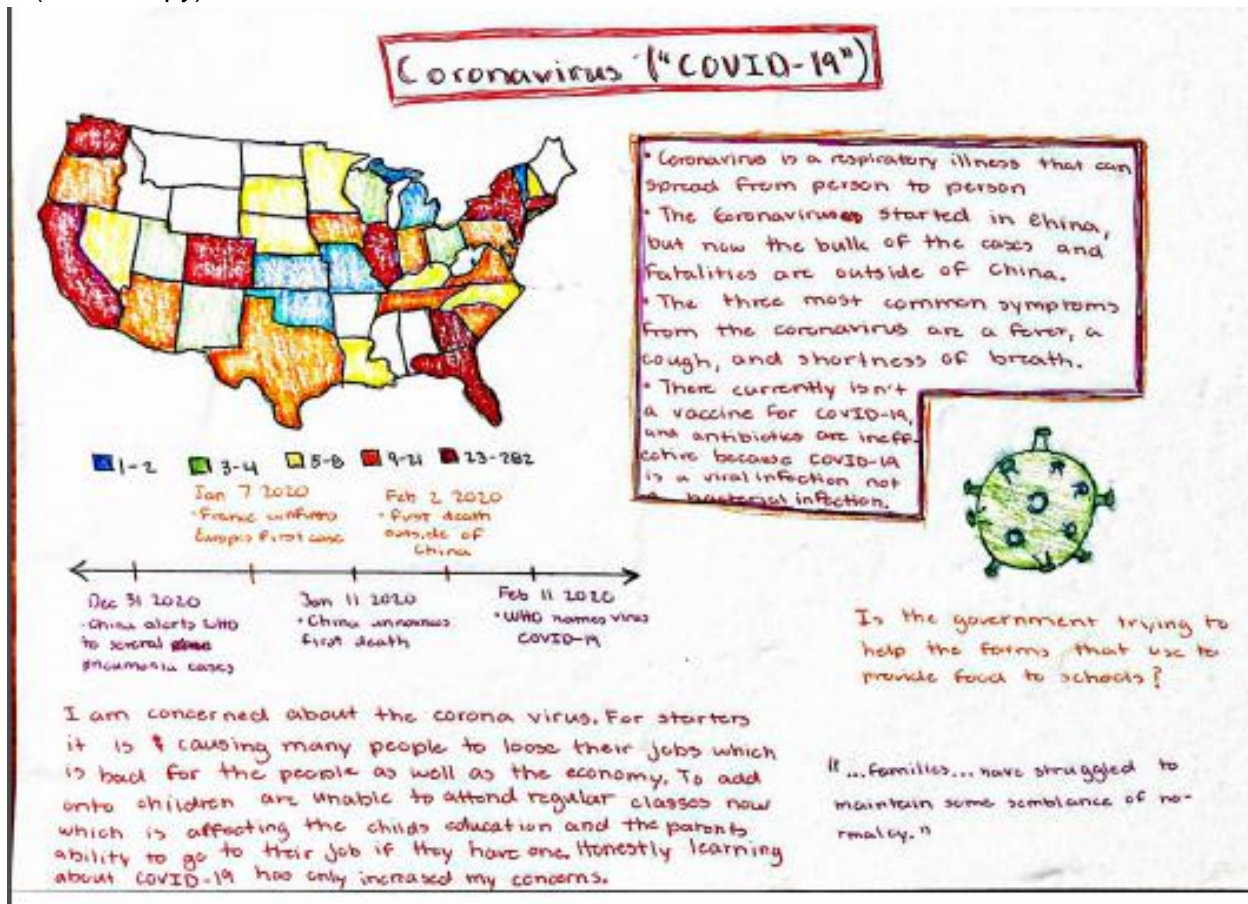 Coronavirus ("COVID-19")
• Coronavirus is a respiratory illness that can
spread from person to person
• The Coronavirus started in China,
but now the bulk of the cases and
fatalities are outside of China.
• The three most common symptoms
from the coronavirus are a fever, a
cough, and shortness of breath.
• There currently isn't
a vaccine for COVID-19,
and antibiotics are ineff-
ective because COVID-19
is a viral infection not
a bacterial infection.
1-2 3-4 5-8 9-21 23-282
Jan 7 2020
• France confirms
Europes first case
Feb 2 2020
• First death
outside of
China
Dec 31 2020
• China alerts WHO
to several
pneumonia cases
Jan 11 2020
• China
first death
Feb 11 2020
• WHO names virus
COVID-19
Is the government trying to
help the farms that use to
provide food to schools?
I am concerned about the corona virus. For starters
it is causing many people to loose their jobs which
is bad for the people as well as the economy. To add
onto children are unable to attend regular classes now
which is affecting the childs education and the parents
ability to go to their job if they have one. Honestly learning
about COVID-19 has only increased my concerns.
"...families... have struggled to
maintain some semblance of no-
rmalcy."